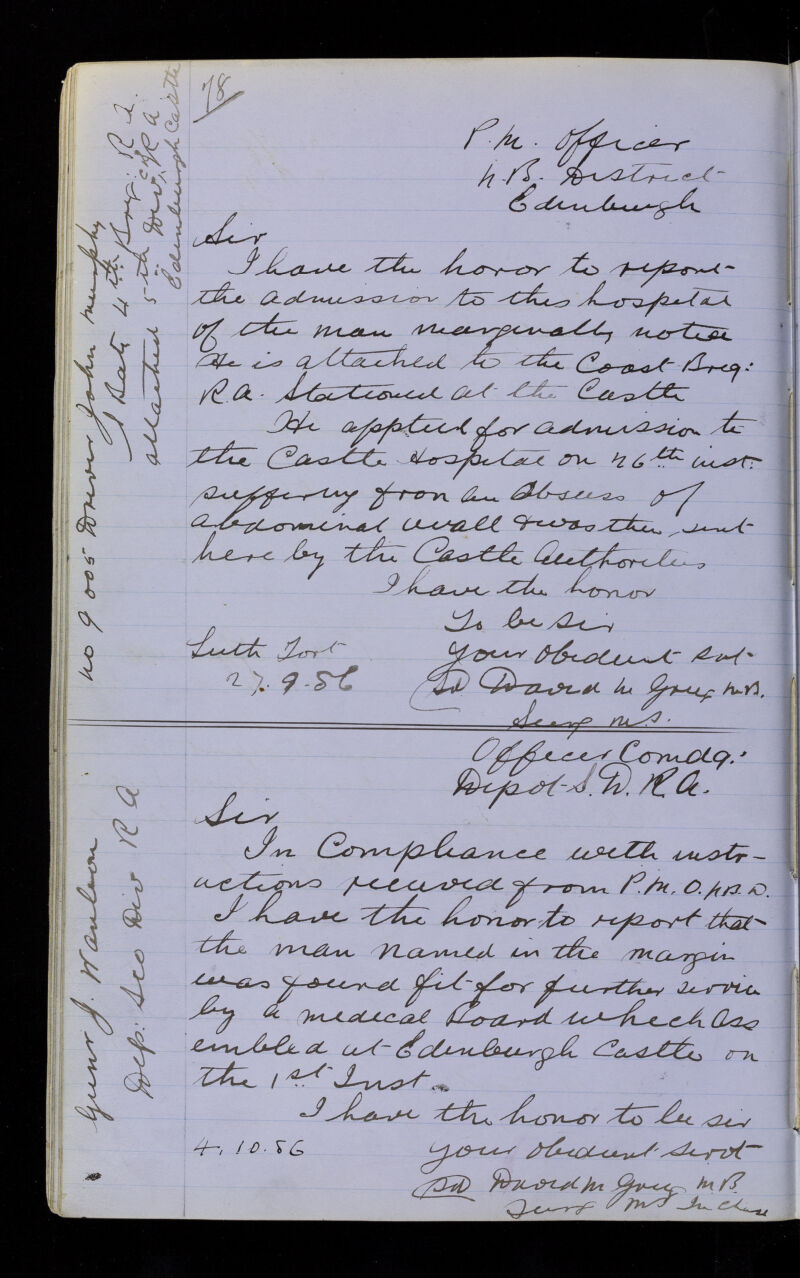 78
P. M. Officer
N.B. District
Edinburgh
Sir
I have the honor to report
the admission to this hospital
of the man marginally noted
He is attached to the Coast Brig:
R.A. Stationed at the Castle
He applied for admission to
the Castle Hospital on 26th inst.
suffering from an Abscess of
abdominal wall & was then sent
here by the Castle Authorities
I have the honor
To be Sir
Your Obedient Svt
Leith Fort
27.9.86
Sd David M Greig M.B.
Surg M.S.
No 9005 Driver John Murphy
Baty 4th Brig: R A.
attached 5th Div: R A
Edinburgh Castle
Officer Comdg:
Depot S. D. R. A.
Sir
In Compliance with instr-
uctions received from P. M. O. N.B. D.
I have the honor to report that
the man named in the margin
was found fit for further service
by a medical Board which ass
embled at Edinburgh Castle on
the 1st Inst.
I have the honor to be sir
4.10.86
Your obedient servt
Sd David M Greig M.B.
Surg MS In Charge
Gunr J.
Dep: Sco Div R A